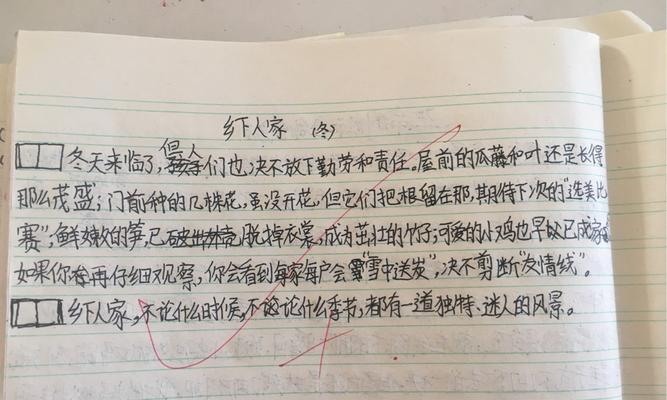 乡下人家 (冬)
冬天来临了,但人们也决不放下勤劳和责任。屋前的瓜藤和叶还是长得
那么茂盛;门前种的几株花,虽没开花,但它们把根留在那,期待下次的“选美比
赛”;鲜嫩的笋,已脱掉衣裳,成为茁壮的竹子;可爱的小鸡也早以已成家。
如果你再仔细观察,你会看到每家每户会“雪中送发”,决不剪断“发情线”。
乡下人家,不论什么时候,不论什么季节,都有一道独特、迷人的风景。